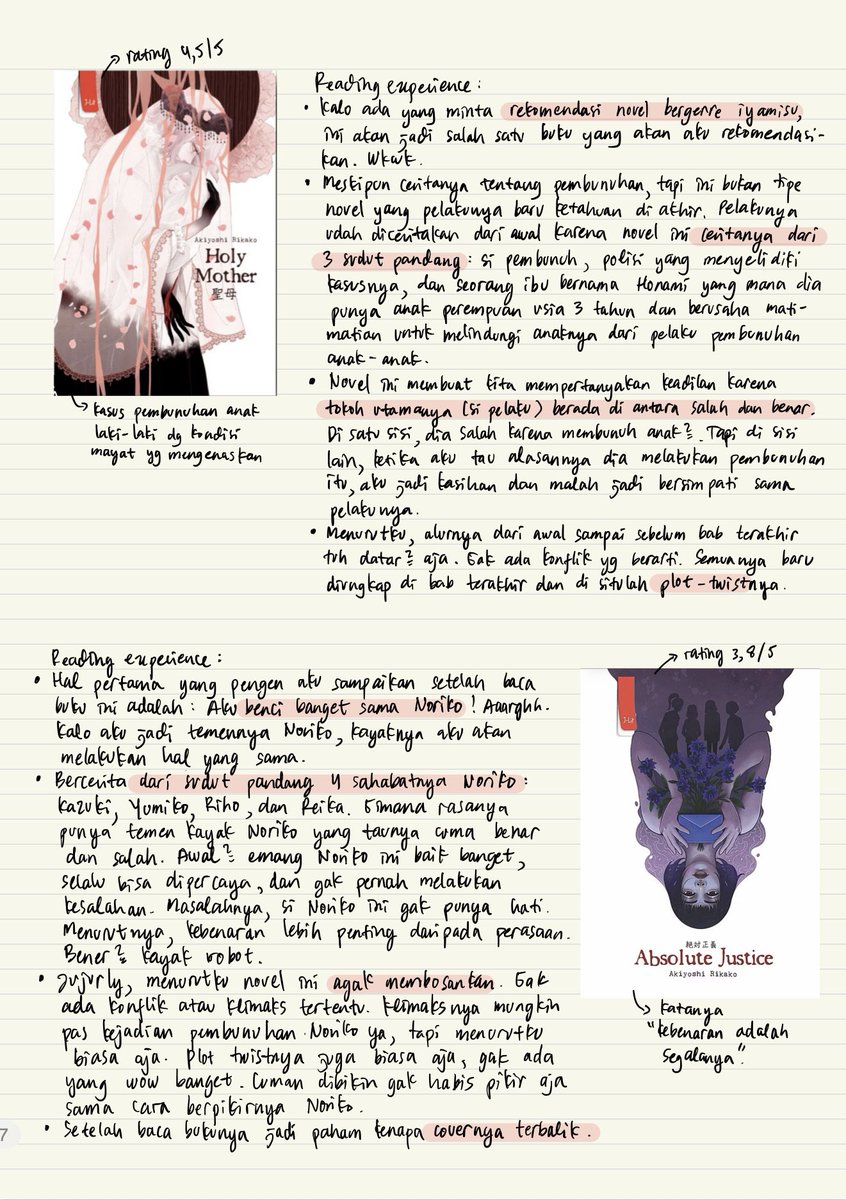 rating 4,5/5
Haru
Akiyoshi Rikako
Holy
Mother
聖母
kasus pembunuhan anak
laki-laki dg kondisi
mayat yg mengenaskan
Reading experience :
• Kalo ada yang minta rekomendasi novel bergenre iyamisu,
ini akan jadi salah satu buku yang akan aku rekomendasi-
kan. Wkwk.
• Meskipun ceritanya tentang pembunuhan, tapi ini bukan tipe
novel yang pelakunya baru ketahuan di akhir. Pelakunya
udah diceritakan dari awal karena novel ini ceritanya dari
3 sudut pandang : si pembunuh, polisi yang menyelidiki
kasusnya, dan seorang ibu bernama Honami yang mana dia
punya anak perempuan usia 3 tahun dan berusaha mati-
matian untuk melindungi anaknya dari pelaku pembunuhan
anak-anak.
• Novel ini membuat kita mempertanyakan keadilan karena
tokoh utamanya (si pelaku) berada di antara salah dan benar.
Di satu sisi, dia salah karena membunuh anak². Tapi di sisi
lain, ketika aku tau alasannya dia melakukan pembunuhan
itu, aku jadi kasihan dan malah jadi bersimpati sama
pelakunya.
• Menurutku, alurnya dari awal sampai sebelum bab terakhir
tuh datar² aja. Gak ada konflik yg berarti. Semuanya baru
diungkap di bab terakhir dan di situlah plot-twistnya.
Reading experience :
• Hal pertama yang pengen aku sampaikan setelah baca
buku ini adalah : Aku benci banget sama Noriko ! Aaarghh.
Kalo aku jadi temennya Noriko, kayaknya aku akan
melakukan hal yang sama.
• Bercerita dari sudut pandang 4 sahabatnya Noriko :
Kazuki, Yumiko, Riho, dan Reika. Gimana rasanya
punya temen kayak Noriko yang taunya cuma benar
dan salah. Awal² emang Noriko ini baik banget,
selalu bisa dipercaya, dan gak pernah melakukan
kesalahan. Masalahnya, si Noriko ini gak punya hati.
Menurutnya, kebenaran lebih penting daripada perasaan.
Bener² kayak robot.
• Jujurly, menurutku novel ini agak membosankan. Gak
ada konflik atau klimaks tertentu. Klimaksnya mungkin
pas kejadian pembunuhan Noriko ya, tapi menurutku
biasa aja. Plot twistnya juga biasa aja, gak ada
yang wow banget. Cuman dibikin gak habis pikir aja
sama cara berpikirnya Noriko.
• Setelah baca bukunya jadi paham kenapa covernya terbalik.
rating 3,8/5
Haru
絶対正義
Absolute Justice
Akiyoshi Rikako
katanya
"kebenaran adalah
segalanya".
7